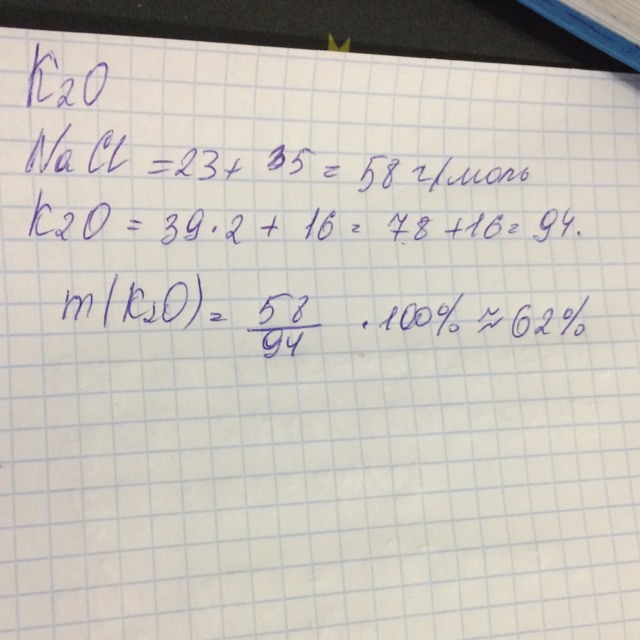 K₂O
NaCl = 23 + 35 = 58 г/моль
K2O = 39·2 + 16 = 78 + 16 = 94.
m(K₂O) = 58/94 · 100% ≈ 62%